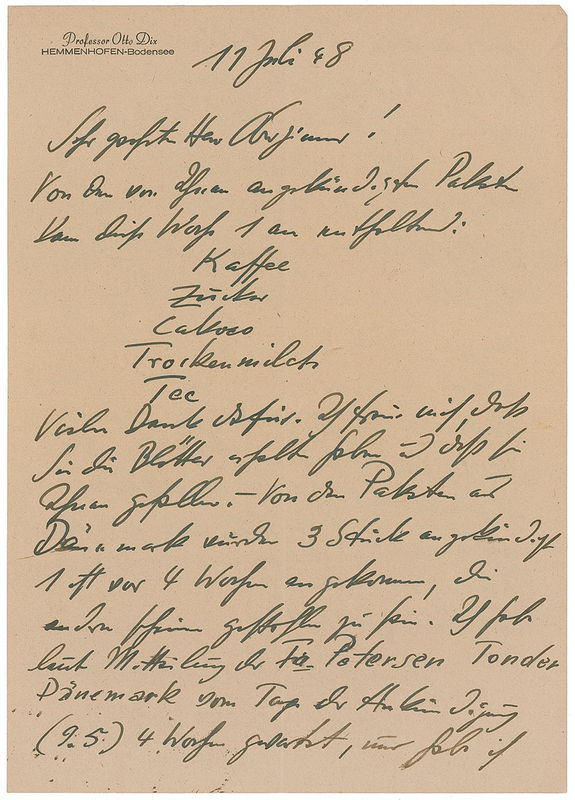 Professor Otto Dix
HEMMENHOFEN-Bodensee
11 Juli 48
Sehr geehrter Herr !
Von den von Ihnen angekündigten Paketen
kam diese Woche 1 an enthaltend:
Kaffee
Zucker
Cakao
Trockenmilch
Tee
Vielen Dank dafür. Ich freue mich, daß
Sie die Blätter erhalten haben und daß sie
Ihnen gefallen. – Von den Paketen aus
Dänemark wurden 3 Stück angekündigt
1 ist vor 4 Wochen angekommen, die
andern scheinen gestohlen zu sein. Ich habe
laut Mitteilung der Fa. Petersen Tonder
Dänemark vom Tage der Ankündigung
(9.5.) 4 Wochen gewartet, nun habe ich